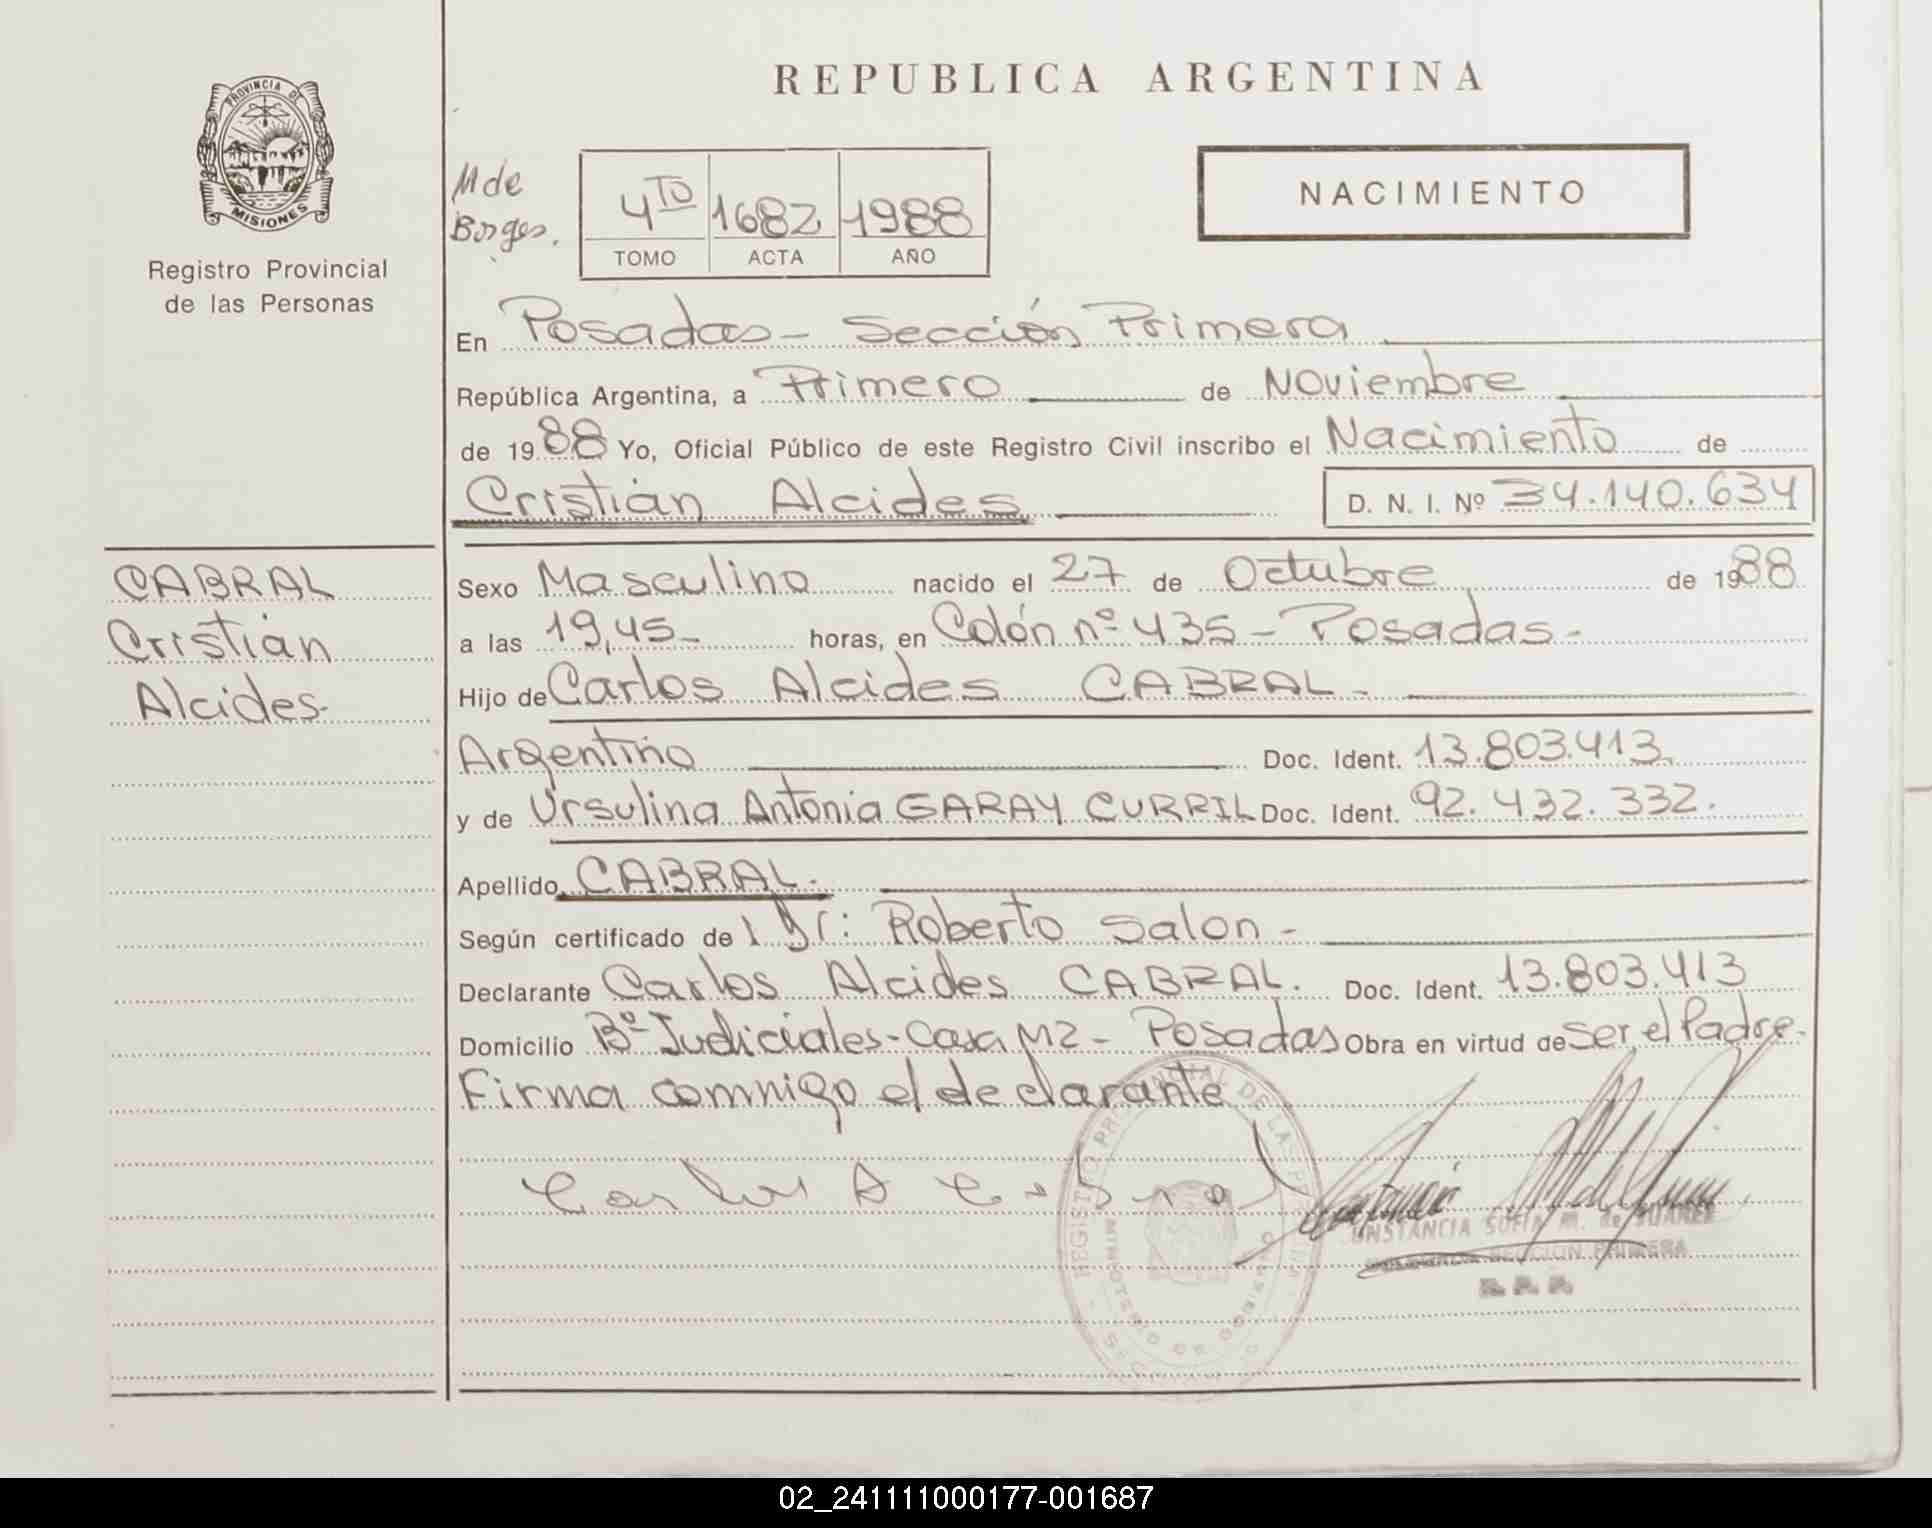 REPUBLICA ARGENTINA
PROVINCIA DE
MISIONES
Registro Provincial
de las Personas
M de
Borges.
4TO 1682 1988
TOMO ACTA AÑO
NACIMIENTO
En Posadas - Sección Primera
República Argentina, a Primero de Noviembre
de 1988 Yo, Oficial Público de este Registro Civil inscribo el Nacimiento de
Cristian Alcides D. N. I. Nº 34.140.634
CABRAL
Cristian
Alcides-
Sexo Masculino nacido el 27 de Octubre de 1988
a las 19,45- horas, en Colón nº 435 - Posadas-
Hijo de Carlos Alcides CABRAL -
Argentino Doc. Ident. 13.803.413.
y de Ursulina Antonia GARAY CURRIL Doc. Ident. 92.432.332.
Apellido CABRAL.
Según certificado del Dr: Roberto Salon -
Declarante Carlos Alcides CABRAL. Doc. Ident. 13.803.413
Domicilio Bº Judiciales - Casa M2 - Posadas Obra en virtud de Ser el Padre.
Firma comnigo el declarante
Carlos A Cabral
REGISTRO PROVINCIAL DE LAS PERSONAS
MINISTERIO DE GOBIERNO
CONSTANCIA SOFIA M. de SUAREZ
SECCION PRIMERA
02_241111000177-001687